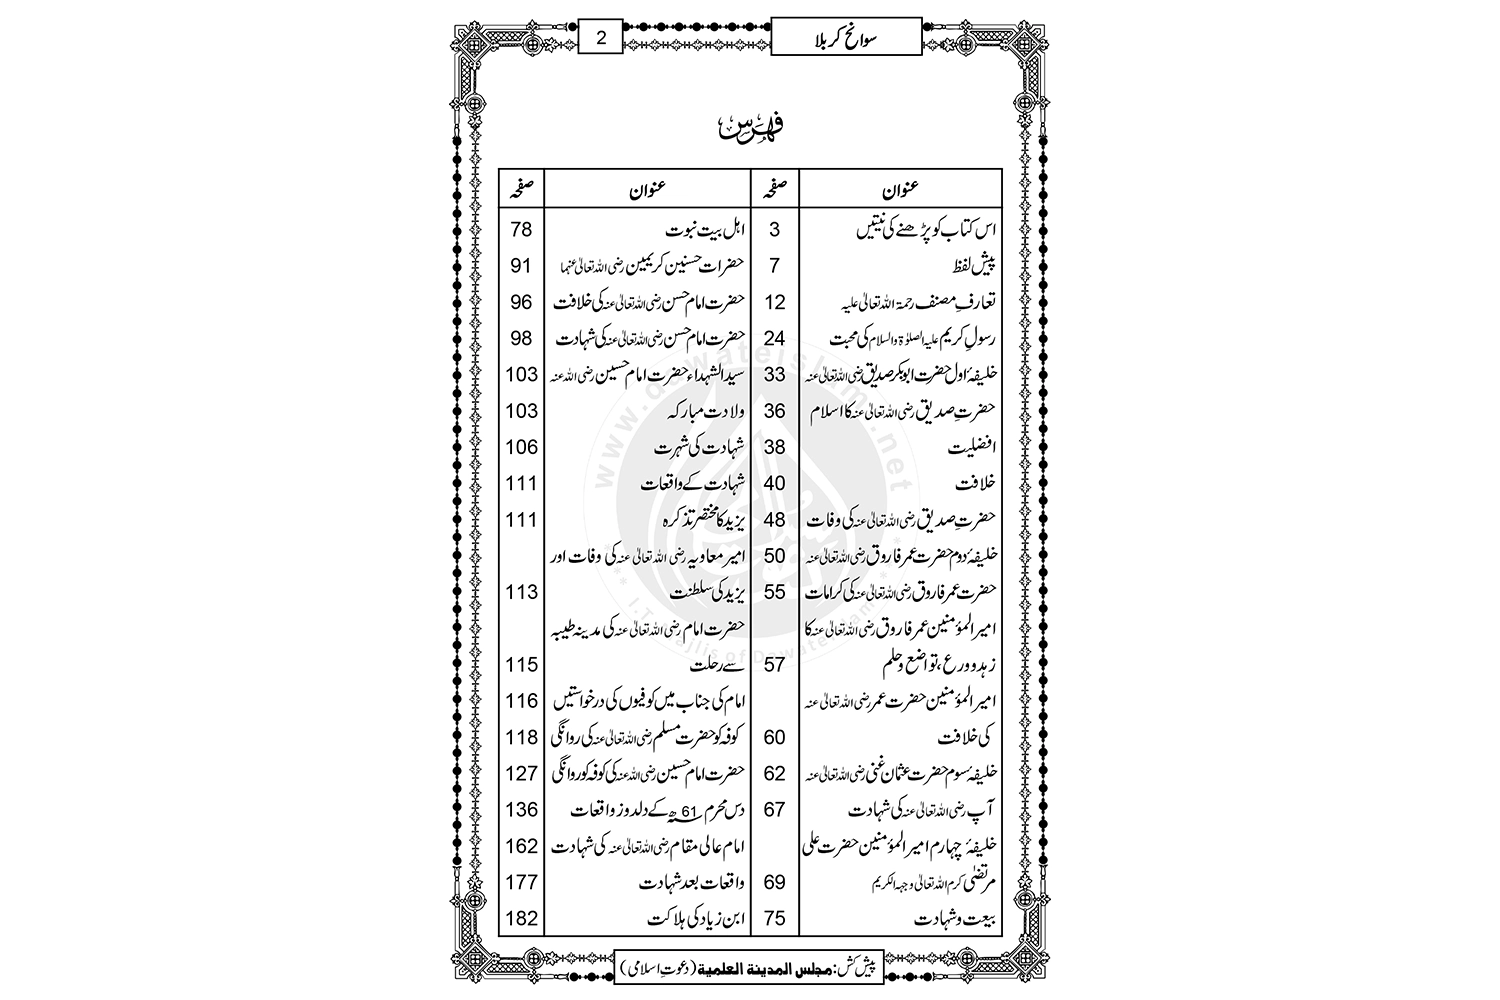 سوانحِ کربلا
2
فہرس
عنوان صفحہ عنوان صفحہ
اس کتاب کو پڑھنے کی نیتیں 3 اہل بیت نبوت 78
پیش لفظ 7 حضرات حسنین کریمین رضی اللہ تعالیٰ عنہما 91
تعارفِ مصنف رحمۃ اللہ تعالیٰ علیہ 12 حضرت امام حسن رضی اللہ تعالیٰ عنہ کی خلافت 96
رسولِ کریم علیہ الصلوٰۃ والسلام کی محبت 24 حضرت امام حسن رضی اللہ تعالیٰ عنہ کی شہادت 98
خلیفۂ اول حضرت ابوبکر صدیق رضی اللہ تعالیٰ عنہ 33 سید الشہداء حضرت امام حسین رضی اللہ عنہ 103
حضرتِ صدیق رضی اللہ تعالیٰ عنہ کا اسلام 36 ولادت مبارکہ 103
افضلیت 38 شہادت کی شہرت 106
خلافت 40 شہادت کے واقعات 111
حضرتِ صدیق رضی اللہ تعالیٰ عنہ کی وفات 48 یزید کا مختصر تذکرہ 111
خلیفۂ دوم حضرت عمر فاروق رضی اللہ تعالیٰ عنہ 50 امیر معاویہ رضی اللہ تعالیٰ عنہ کی وفات اور
حضرت عمر فاروق رضی اللہ تعالیٰ عنہ کی کرامات 55 یزید کی سلطنت 113
امیر المؤمنین عمر فاروق رضی اللہ تعالیٰ عنہ کا حضرت امام رضی اللہ تعالیٰ عنہ کی مدینہ طیبہ
زہد و ورع، تواضع و حلم 57 سے رحلت 115
امیر المؤمنین حضرت عمر رضی اللہ تعالیٰ عنہ امام کی جناب میں کوفیوں کی درخواستیں 116
کی خلافت 60 کوفہ کو حضرت مسلم رضی اللہ تعالیٰ عنہ کی روانگی 118
خلیفۂ سوم حضرت عثمان غنی رضی اللہ تعالیٰ عنہ 62 حضرت امام حسین رضی اللہ عنہ کی کوفہ کو روانگی 127
آپ رضی اللہ تعالیٰ عنہ کی شہادت 67 دس محرم 61ھ کے دلدوز واقعات 136
خلیفۂ چہارم امیر المؤمنین حضرت علی امام عالی مقام رضی اللہ تعالیٰ عنہ کی شہادت 162
مرتضیٰ کرم اللہ تعالیٰ وجہہ الکریم 69 واقعات بعد شہادت 177
بیعت و شہادت 75 ابن زیاد کی ہلاکت 182
پیش کش: مجلس المدینۃ العلمیۃ (دعوتِ اسلامی)
www.dawateislami.net
I.T Majlis of Dawateislami